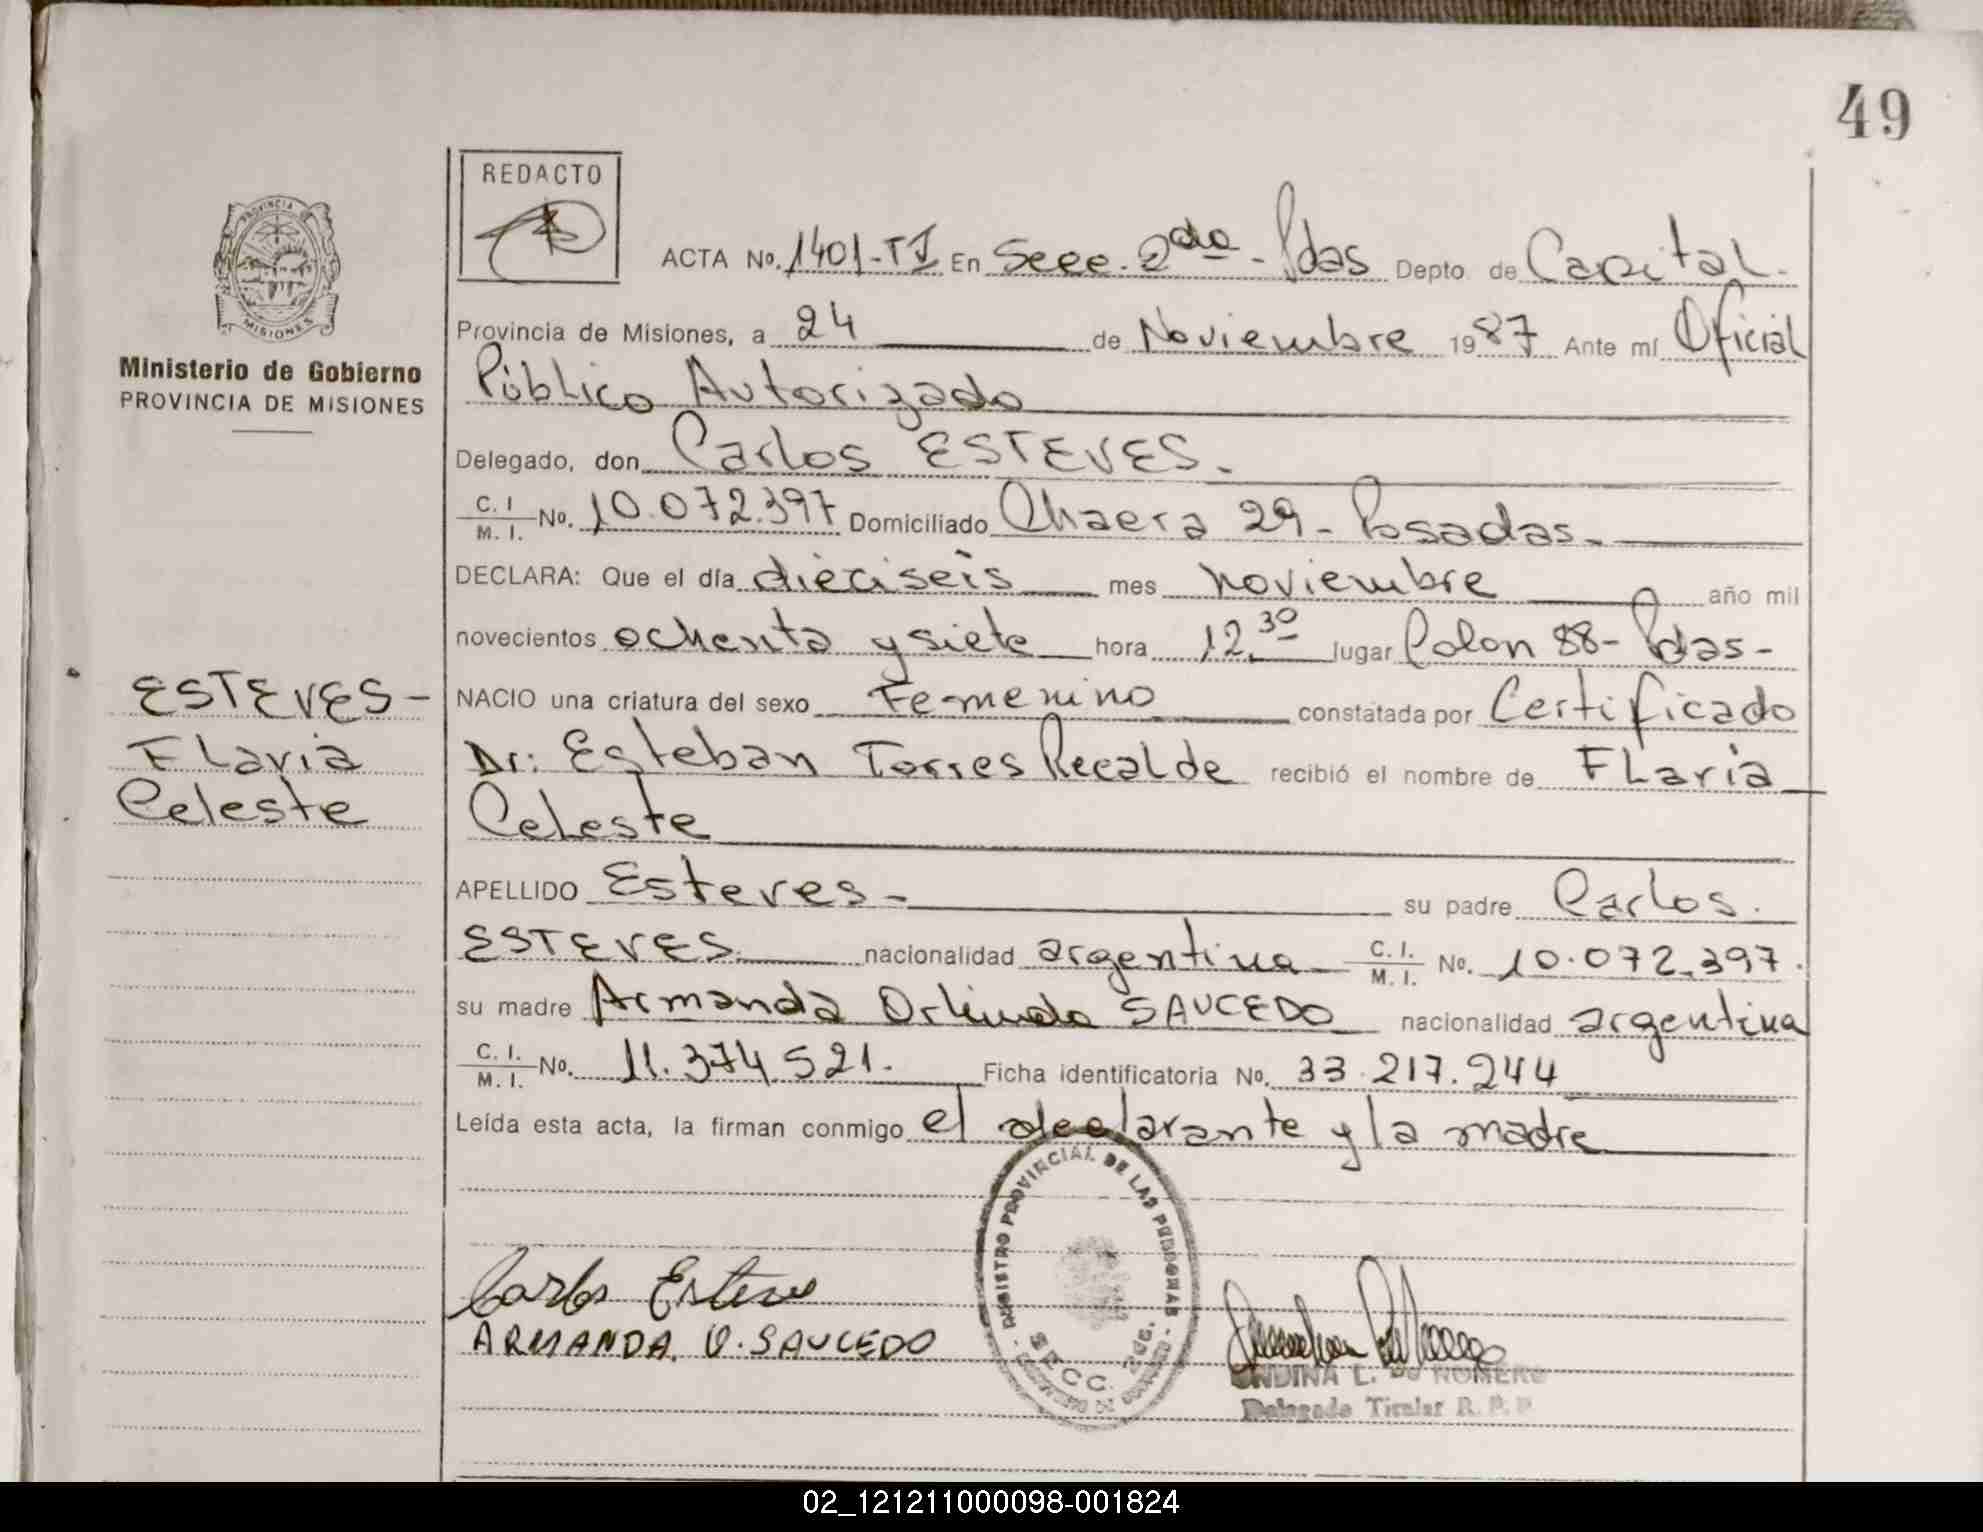 49
REDACTO
ACTA No. 1401-TI En Secc. 2da - Pdas Depto de Capital.
PROVINCIA DE
MISIONES
Provincia de Misiones, a 24 de Noviembre 1987 Ante mí Oficial
Ministerio de Gobierno
PROVINCIA DE MISIONES
Público Autorizado
Delegado, don Carlos ESTEVES.
C. I
M. I. No. 10.072.397 Domiciliado Chacra 29 - Posadas.
DECLARA: Que el día dieciseis mes noviembre año mil
novecientos ochenta y siete hora 12.30 lugar Colon 88 - Pdas -
ESTEVES -
Flavia
Celeste
NACIO una criatura del sexo Femenino constatada por Certificado
Dr: Esteban Torres Recalde recibió el nombre de Flavia
Celeste
APELLIDO Esteves - su padre Carlos.
ESTEVES nacionalidad argentina C. I.
M. I. No. 10.072.397.
su madre Armanda Orlinda SAUCEDO nacionalidad argentina
C. I.
M. I. No. 11.374.521. Ficha identificatoria No. 33.217.244
Leída esta acta, la firman conmigo el declarante y la madre
REGISTRO PROVINCIAL DE LAS PERSONAS
Carlos Esteves
ARMANDA. O. SAUCEDO
ONDINA L. DE ROMERO
Delegado Titular R. P. P.
02_121211000098-001824